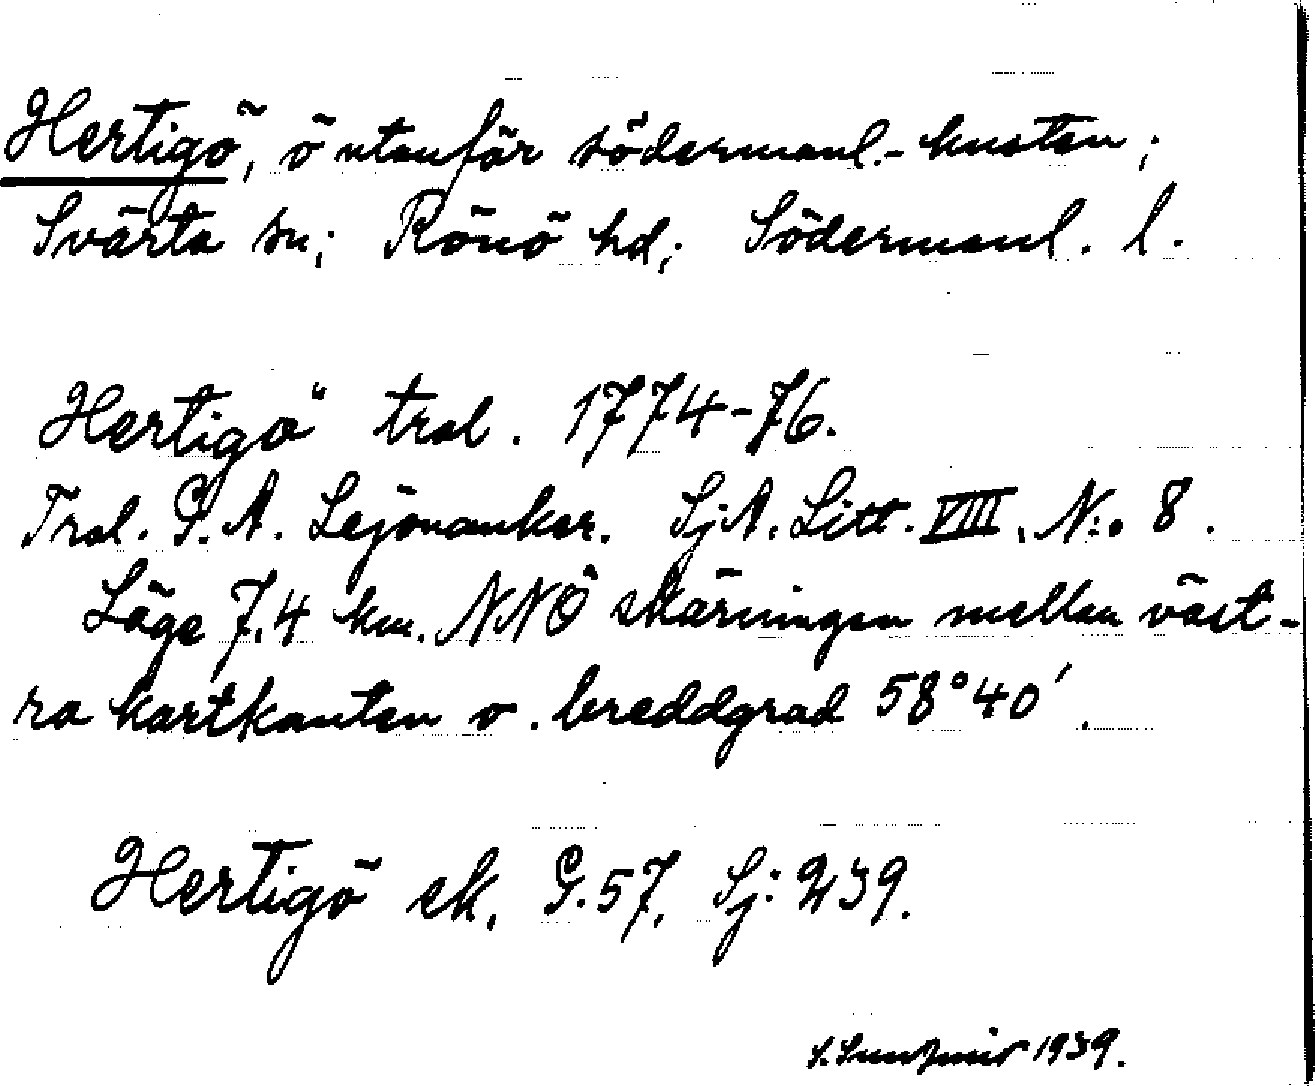 Hertigö, ö utanför södermanl.-kusten;
Svärta sn; Rönö hd; Södermanl. l.
Hertigö" tral. 1774-76.
Tral. G. A. Lejonanker. SjA. Litt. VIII. N:o 8.
Läge 7,4 km. NNÖ skärningen mellan väst-
ra kartkanten o. breddgrad 58°40'.
Hertigö ek. G.57. Sj: 239.
1939.